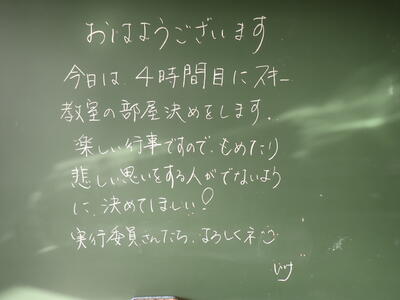 おはようございます
今日は、4時間目にスキー
教室の部屋決めをします。
楽しい行事ですので、もめたり
悲しい思いをする人がでないよう
に、決めてほしい!
実行委員さんたち、よろしくネ